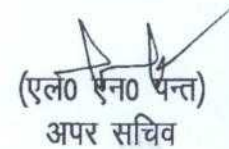 (एल0 एन0 पन्त)
अपर सचिव